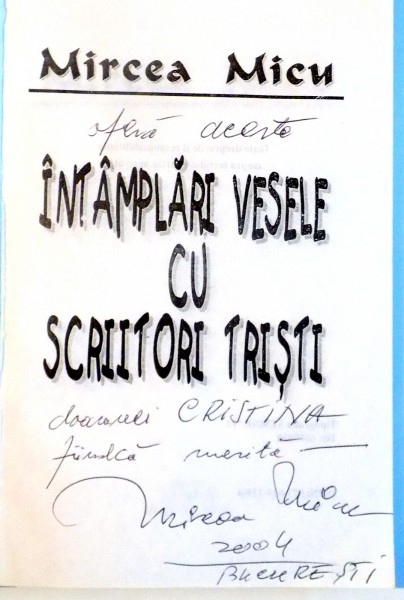 Mircea Micu
oferă aceste
ÎNTÂMPLĂRI VESELE
CU
SCRIITORI TRIŞTI
doamnei CRISTINA
fiindcă merită —
Mircea Micu
2004
BUCUREŞTI